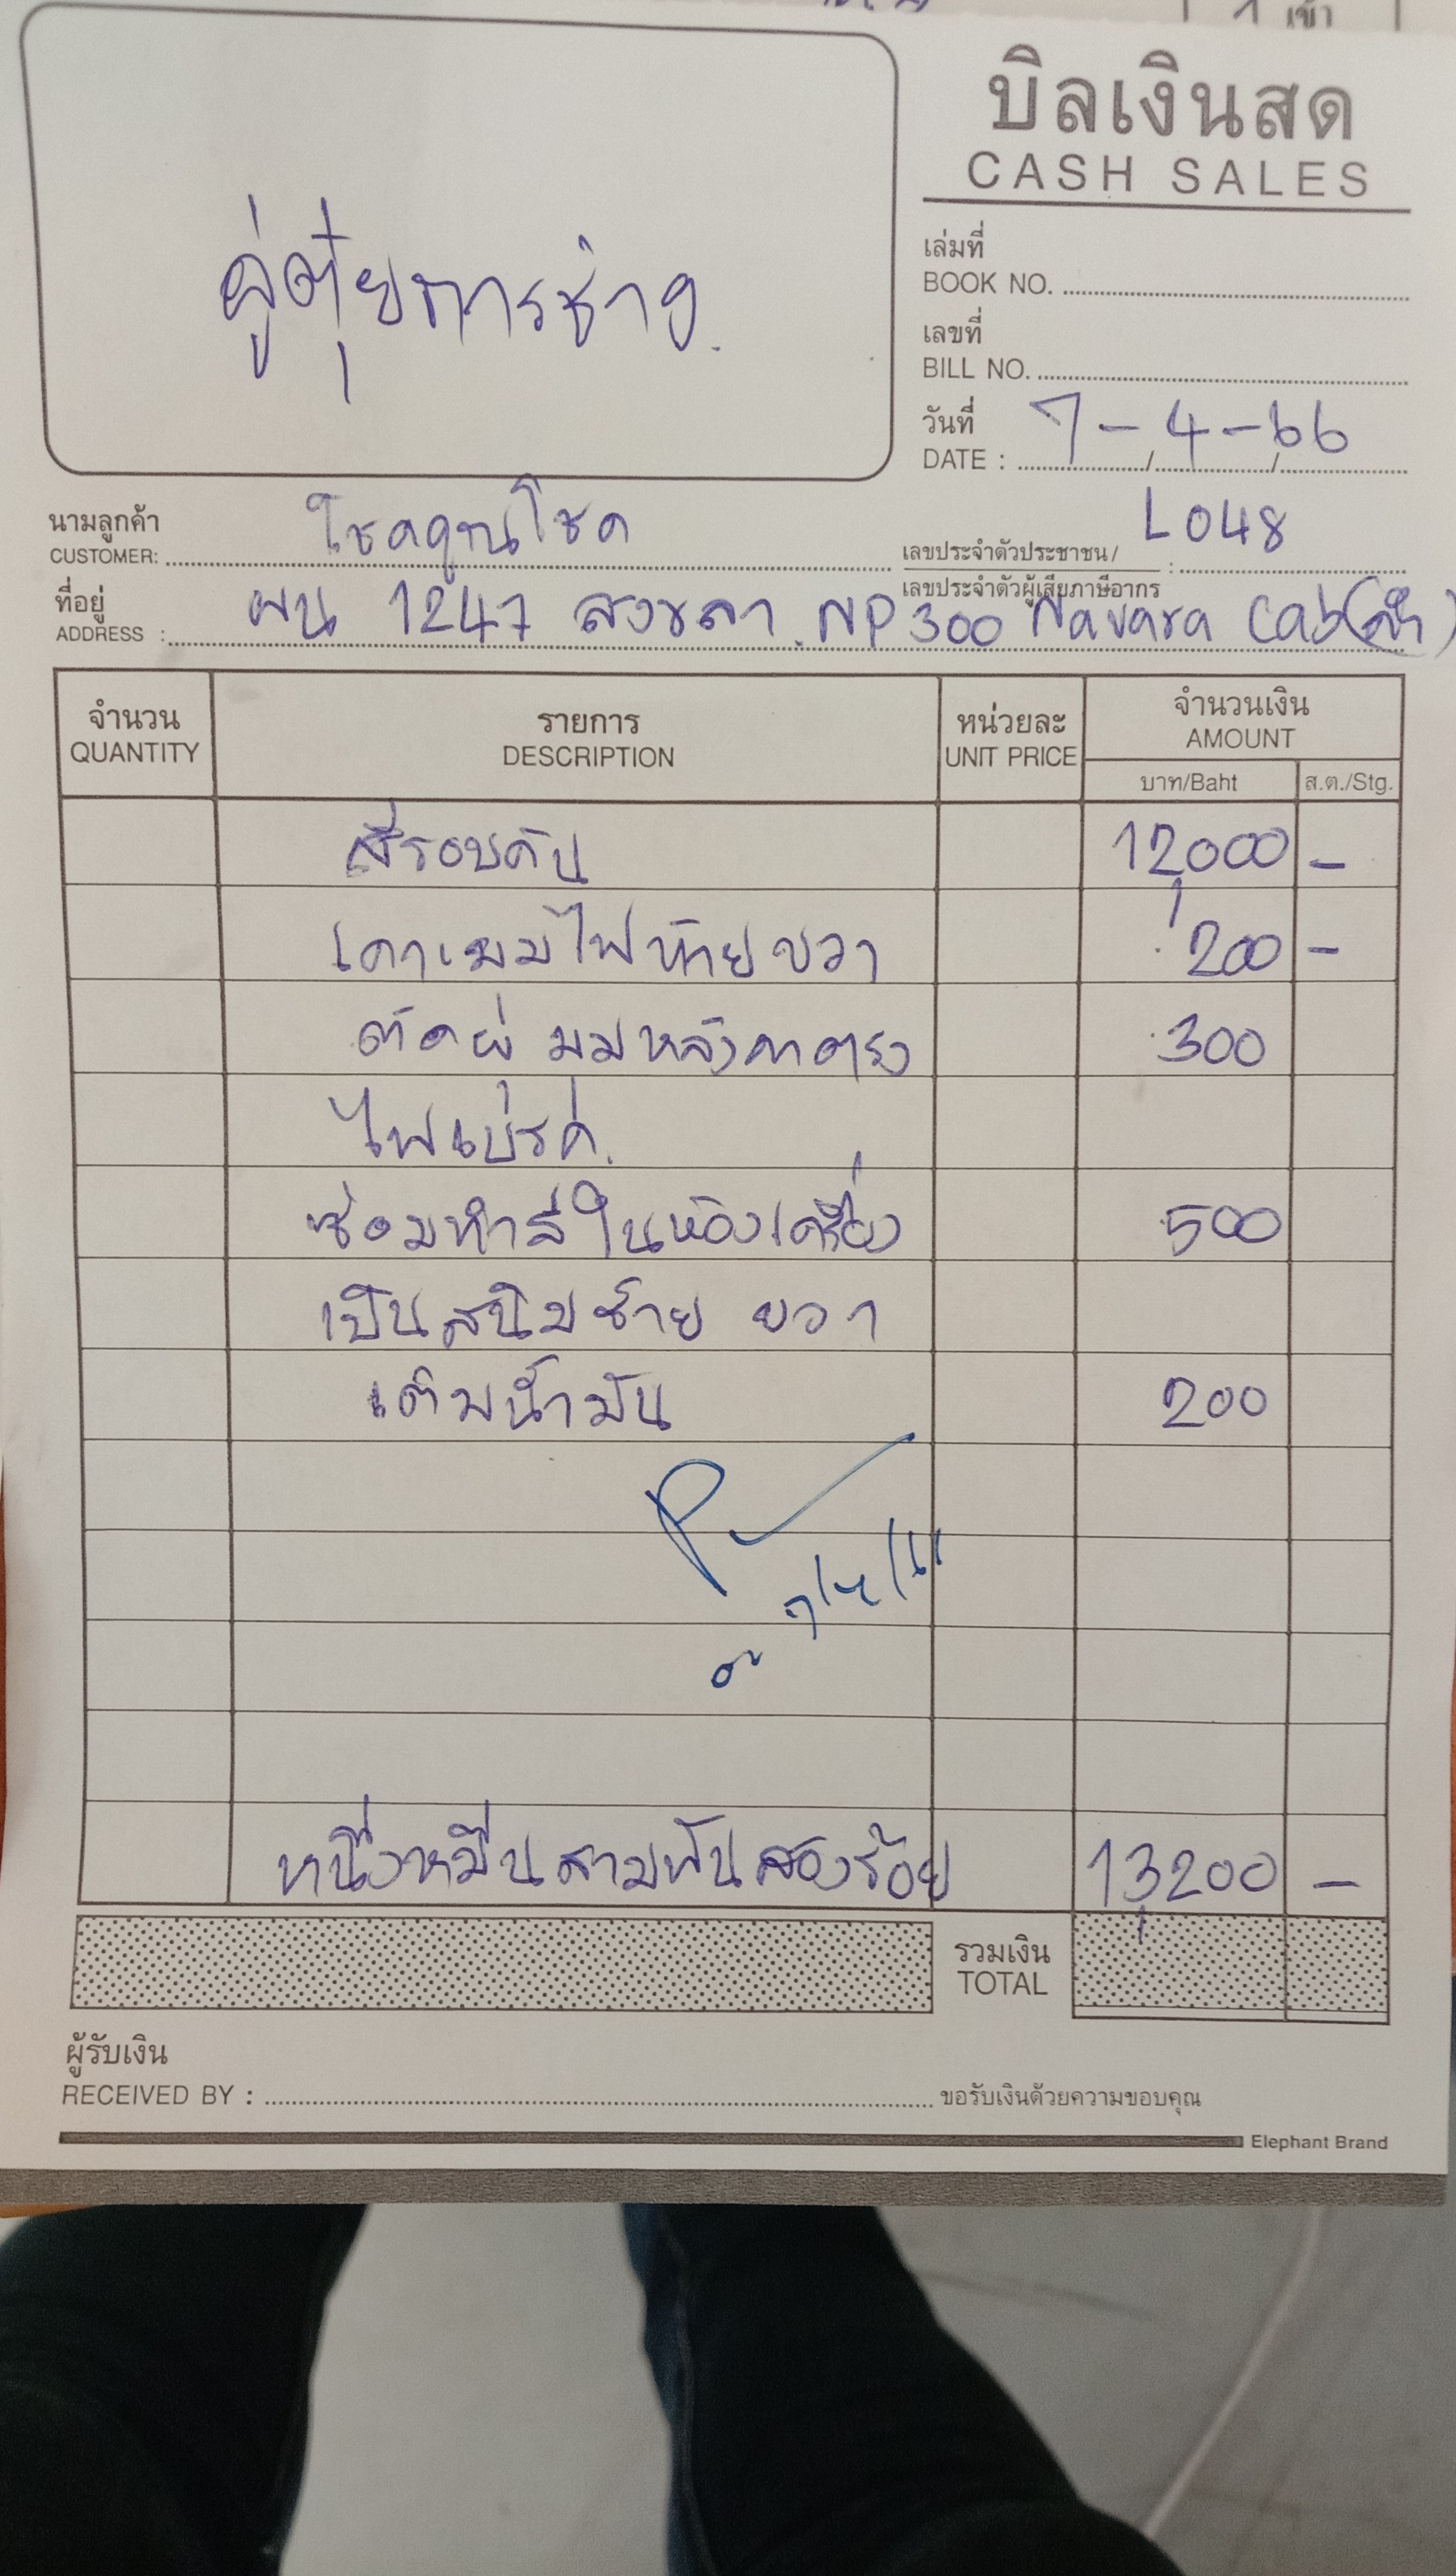 บิลเงินสด
CASH SALES
คู่ตุ๋ยการช่าง.
เล่มที่
BOOK NO.
เลขที่
BILL NO.
วันที่
DATE : 7-4-66
นามลูกค้า
CUSTOMER: โชคคูณโชค
เลขประจำตัวประชาชน/
เลขประจำตัวผู้เสียภาษีอากร : L048
ที่อยู่
ADDRESS : ผน 1247 สงขลา. NP300 Navara Cab(ดำ)
จำนวน รายการ หน่วยละ จำนวนเงิน
QUANTITY DESCRIPTION UNIT PRICE AMOUNT
บาท/Baht ส.ต./Stg.
สีรอบคัน 12,000 -
เคาะมุมไฟท้ายขวา 200 -
ตัดผุ มุมหลังคาตรง 300
ไฟเบรค.
ซ่อมทำสีในห้องเครื่อง 500
เป็นสนิมซ้าย ขวา
เติมน้ำมัน 200
หนึ่งหมื่นสามพันสองร้อย 13,200 -
รวมเงิน
TOTAL
ผู้รับเงิน
RECEIVED BY : ขอรับเงินด้วยความขอบคุณ
Elephant Brand